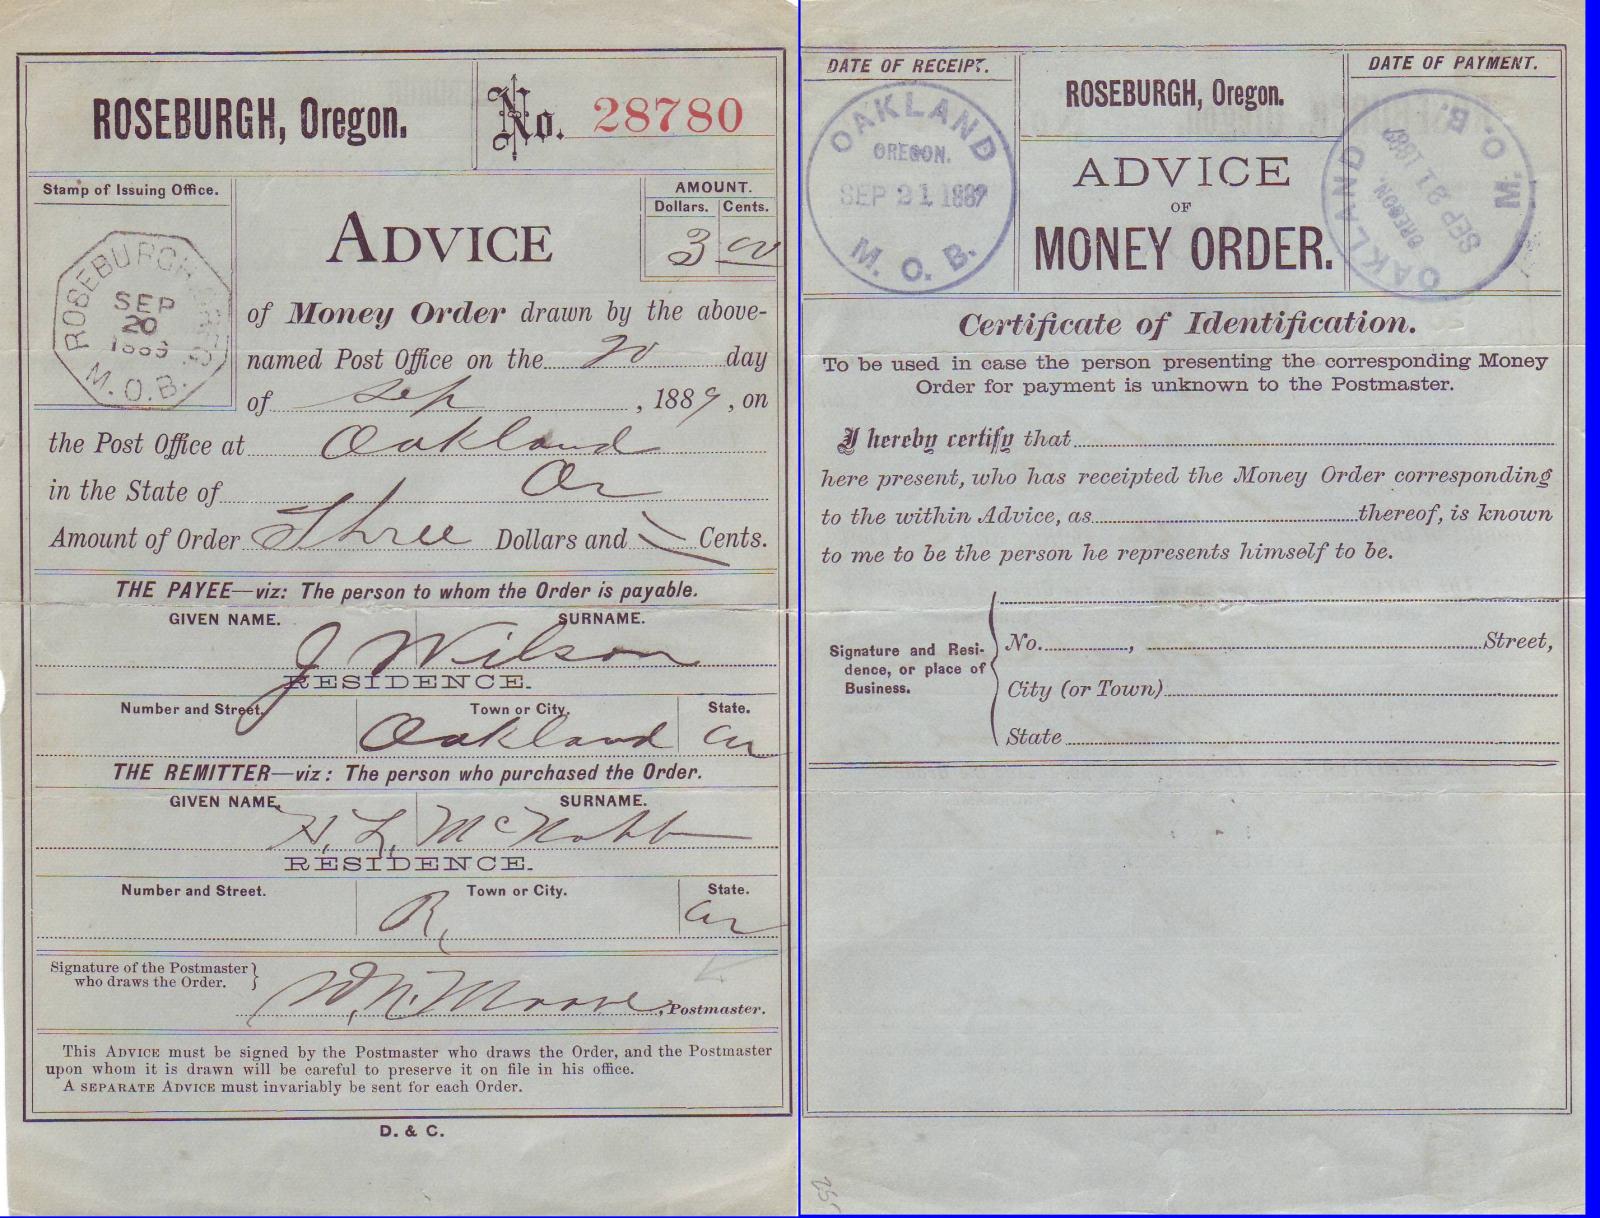 ROSEBURGH, Oregon.
No. 28780
Stamp of Issuing Office.
ROSEBURGH
SEP
20
M.O.B.
ADVICE
AMOUNT.
Dollars. Cents.
3 00
of Money Order drawn by the above-
named Post Office on the 20 day
of Sep, 1889, on
the Post Office at Oakland
in the State of Or
Amount of Order Three Dollars and Cents.
THE PAYEE—viz: The person to whom the Order is payable.
GIVEN NAME. SURNAME.
J Wilson
RESIDENCE.
Number and Street. Town or City. State.
Oakland Or
THE REMITTER—viz: The person who purchased the Order.
GIVEN NAME. SURNAME.
H. L. McNabb
RESIDENCE.
Number and Street. Town or City. State.
R, Or
Signature of the Postmaster
who draws the Order.
W. N. Moore, Postmaster.
This ADVICE must be signed by the Postmaster who draws the Order, and the Postmaster
upon whom it is drawn will be careful to preserve it on file in his office.
A SEPARATE ADVICE must invariably be sent for each Order.
D. & C.
DATE OF RECEIPT.
OAKLAND
OREGON.
SEP 21 1889
M. O. B.
ROSEBURGH, Oregon.
ADVICE
OF
MONEY ORDER.
DATE OF PAYMENT.
OAKLAND
OREGON.
SEP 21 1889
M. O. B.
Certificate of Identification.
To be used in case the person presenting the corresponding Money
Order for payment is unknown to the Postmaster.
I hereby certify that
here present, who has receipted the Money Order corresponding
to the within Advice, as thereof, is known
to me to be the person he represents himself to be.
Signature and Resi-
dence, or place of
Business.
No. , Street,
City (or Town)
State